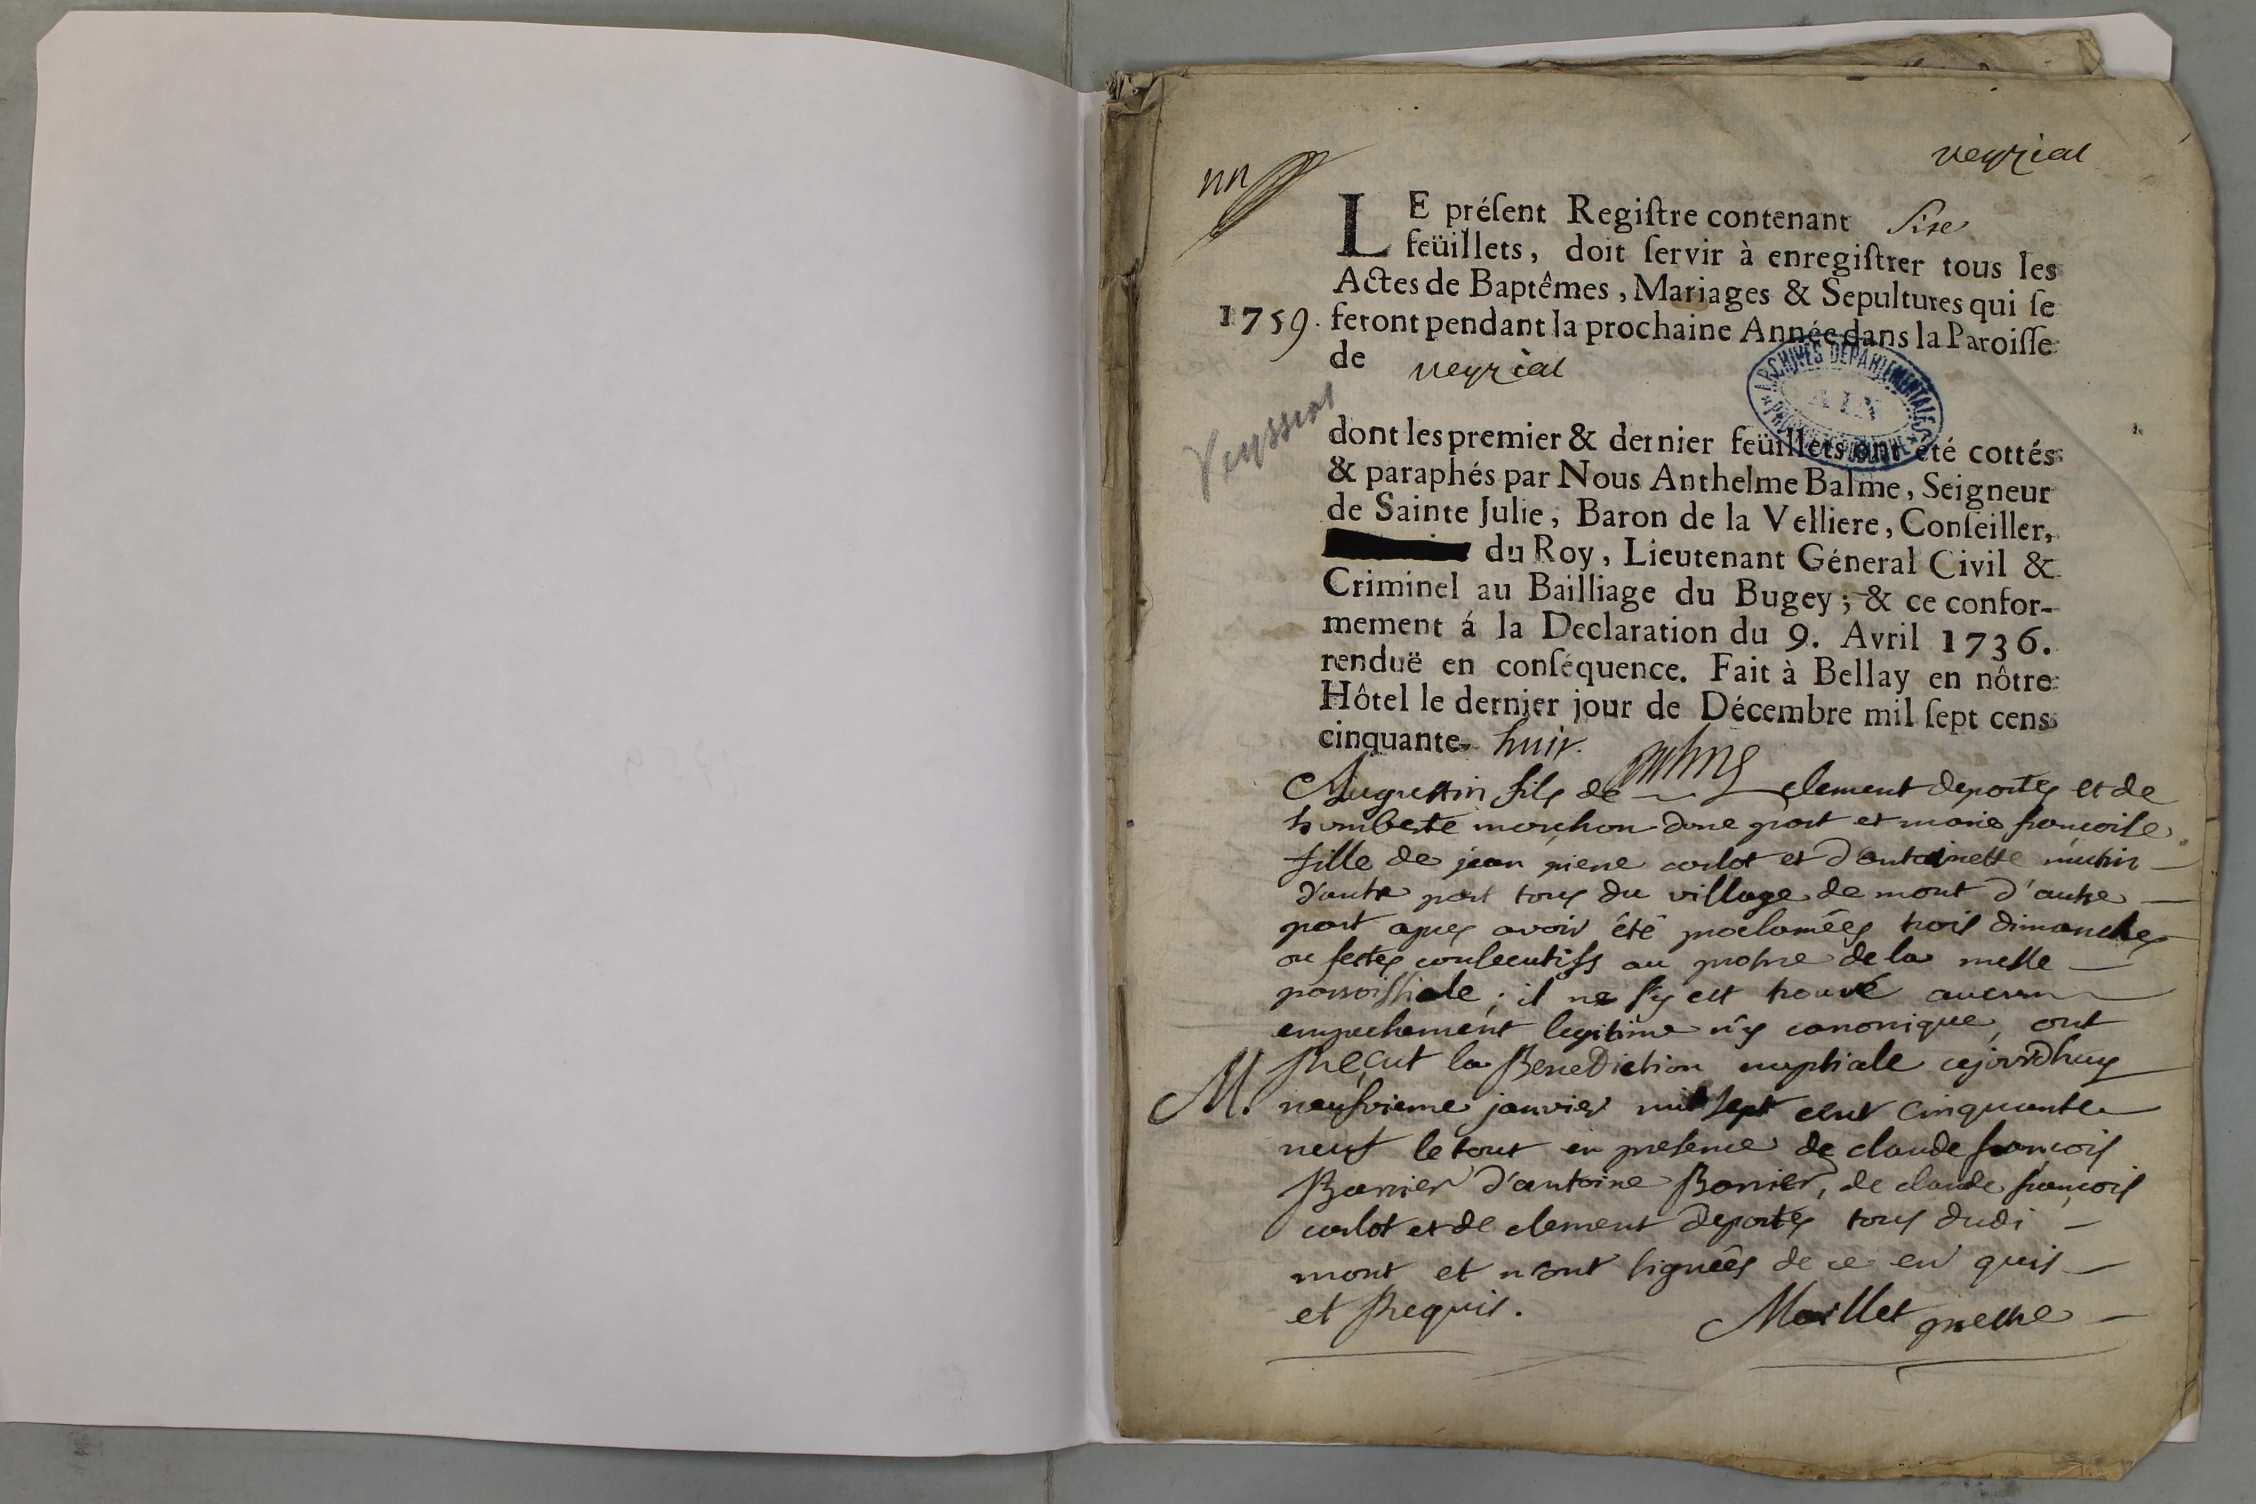 veyziat
LE préſent Regiſtre contenant Sixe
feüillets, doit ſervir à enregiſtrer tous les
Actes de Baptêmes, Mariages & Sepultures qui ſe
1759. feront pendant la prochaine Année dans la Paroiſſe
de veyziat
ARCHIVES DEPARTEMENTALES
AIN
Veyssiat
dont les premier & dernier feüillets ont été cottés
& paraphés par Nous Anthelme Balme, Seigneur
de Sainte Julie, Baron de la Velliere, Conſeiller,
du Roy, Lieutenant Géneral Civil &
Criminel au Bailliage du Bugey; & ce confor-
mement á la Declaration du 9. Avril 1736.
renduë en conſéquence. Fait à Bellay en nôtre
Hôtel le dernier jour de Décembre mil ſept cens
cinquante- huit.
Augustin fils de clement deportes et de
humberte morchon dune part et marie francoise
fille de jean piere carlot et d'antoinette mutin
d'autre part tous du village de mont d'autre
part apres avoir été proclamées trois dimanches
ou festes consecutifs au prosne de la messe
parroissiale; il ne s'y est trouvé aucun
empechement legitime n'y canonique, ont
M. Reçut la Benediction nuptiale cejourdhuy
neufvieme janvier mil sept cent cinquante
neuf le tout en presence de claude françois
Barrier d'antoine Barrier, de claude françois
carlot et de clement deportes tous dudi
mont et n'ont signées de ce en quis
et Requis. Maillet prestre